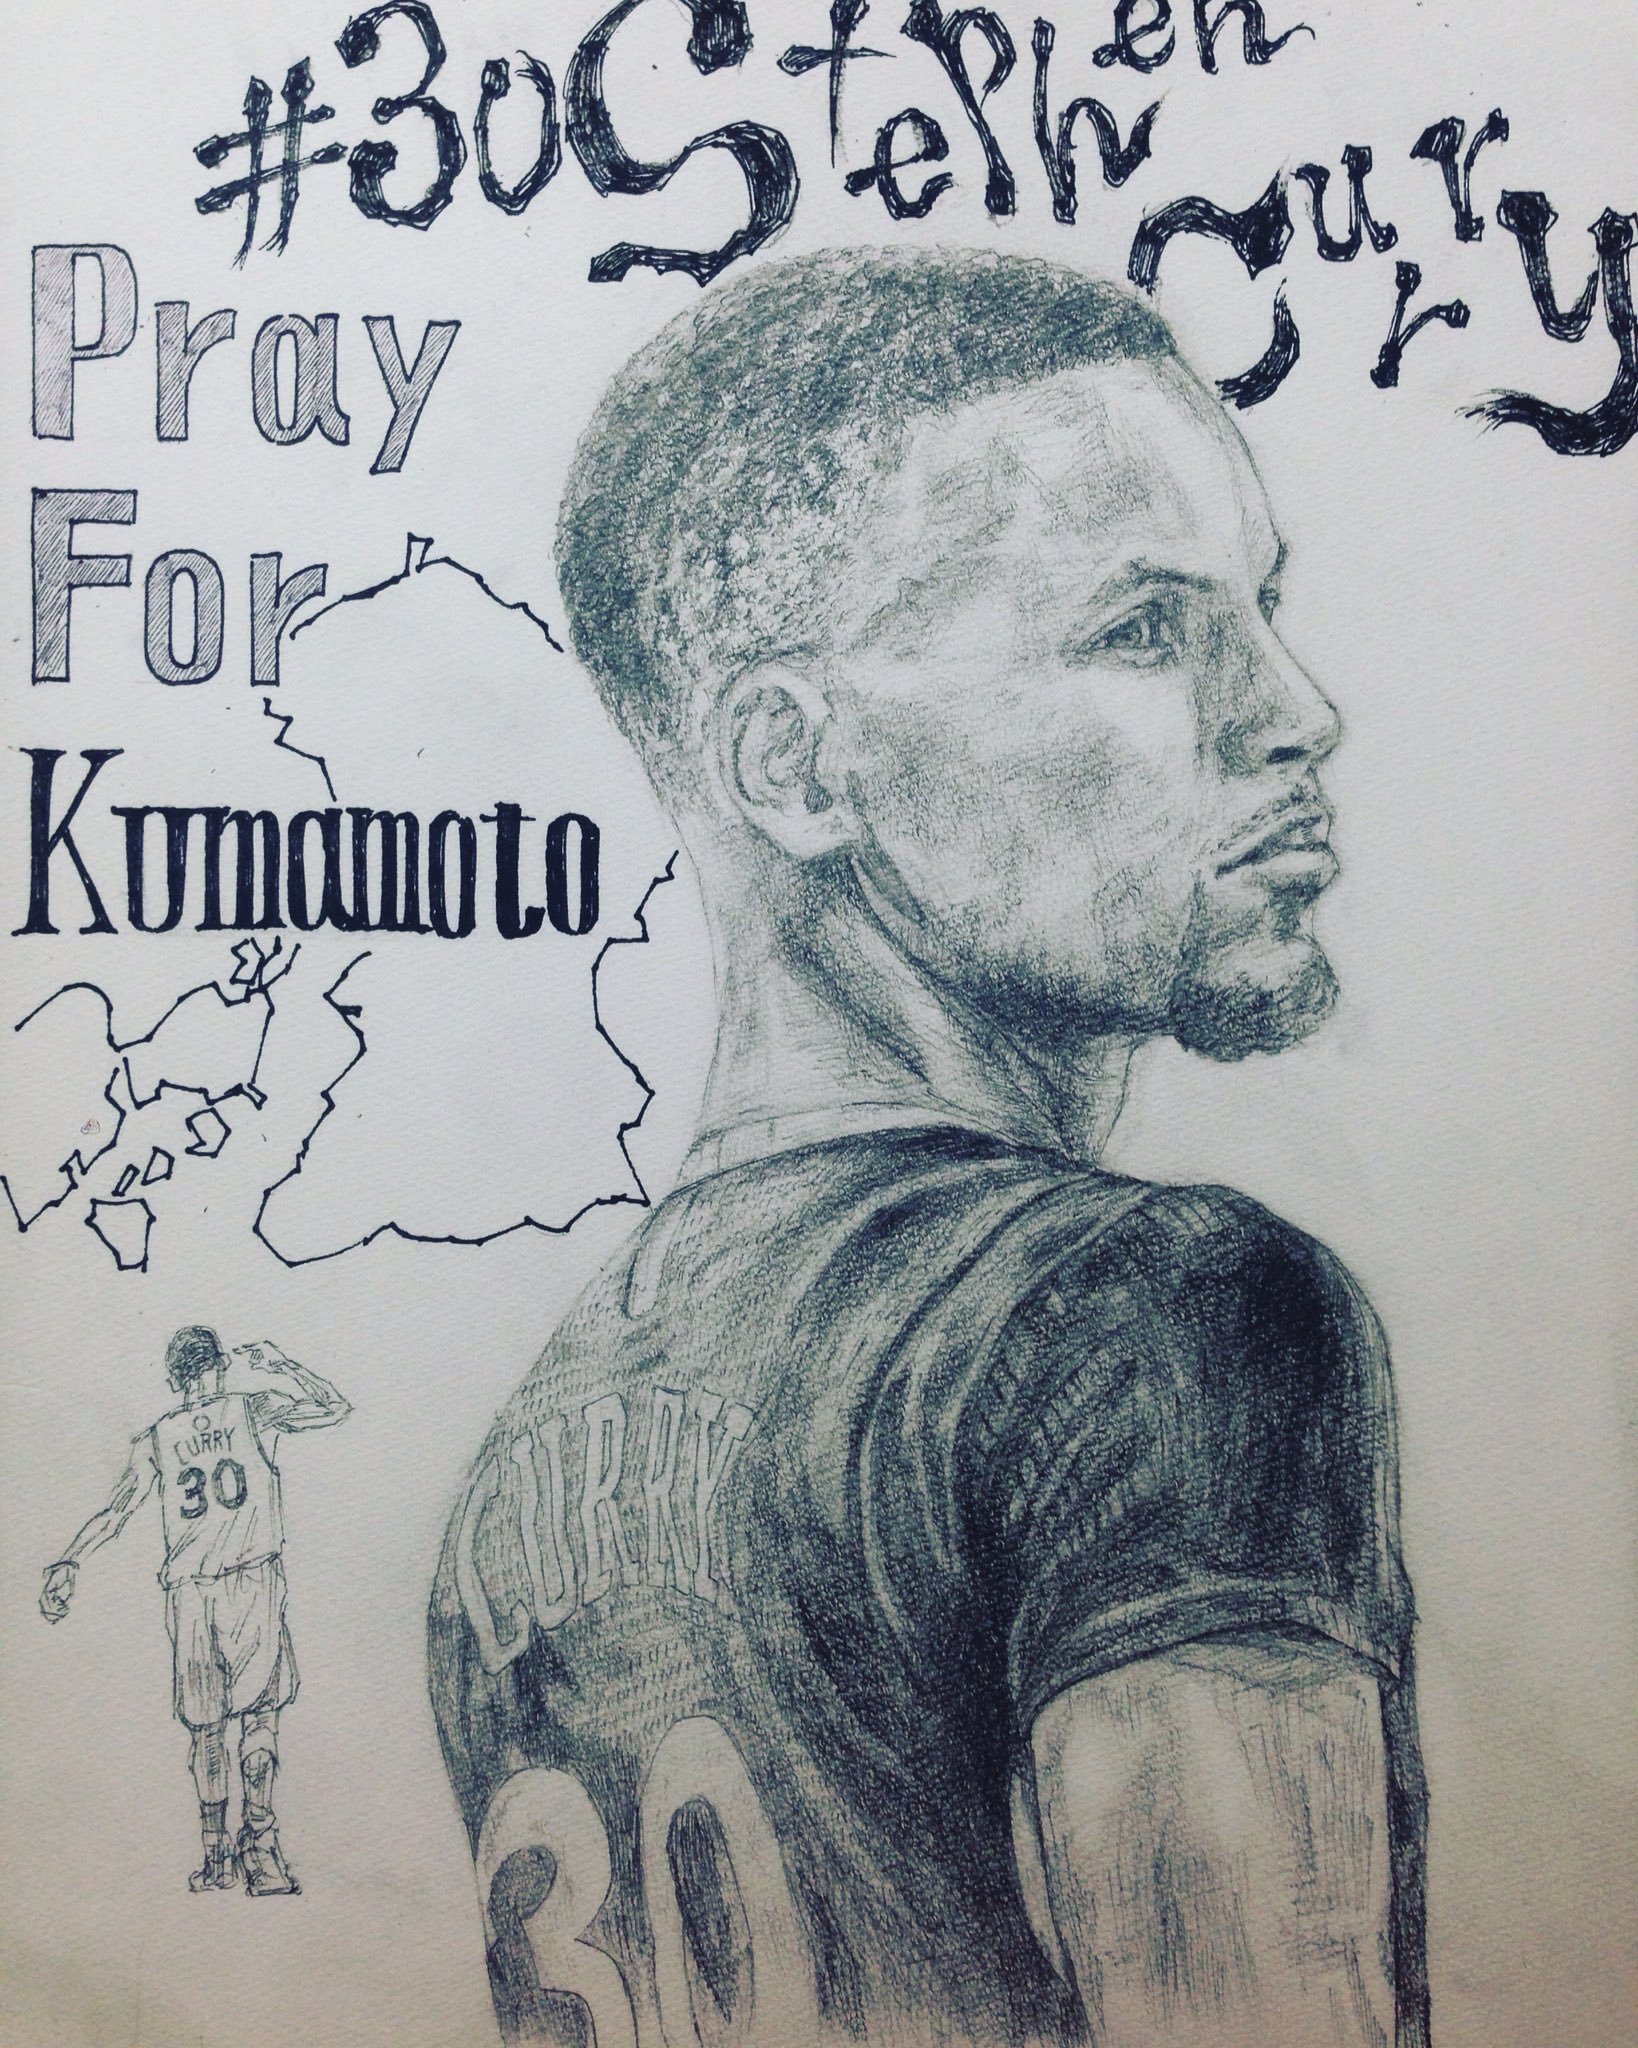 #30 Stephen
Curry
Pray
For
Kumamoto
CURRY
30
CURRY
30